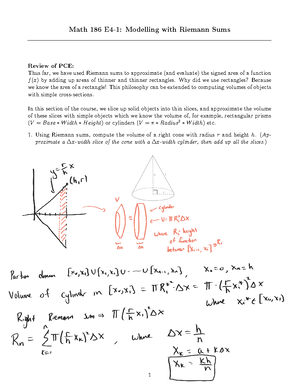 Math 186 E4-1: Modelling with Riemann Sums
Review of PCE:
Thus far, we have used Riemann sums to approximate (and evaluate) the signed area of a function
f(x) by adding up areas of thinner and thinner rectangles. Why did we use rectangles? Because
we know the area of a rectangle! This philosophy can be extended to computing volumes of objects
with simple cross sections.
In this section of the course, we slice up solid objects into thin slices, and approximate the volume
of these slices with simple objects which we know the volume of, for example, rectangular prisms
(V = Base * Width * Height) or cylinders (V = π * Radius² * Width) etc.
1. Using Riemann sums, compute the volume of a right cone with radius r and height h. (Approximate a Δx-width slice of the cone with a Δx-width cylinder, then add up all the slices.)
y = r/h x
(h, r)
cylinder
V = πRᵢ²Δx
where Rᵢ = height
of function
between [xᵢ₋₁, xᵢ]
Δx
Δx
Partition domain [x₀, x₁] ∪ [x₁, x₂] ∪ ... ∪ [xₙ₋₁, xₙ], x₀ = 0, xₙ = h
Volume of cylinder in [x₀, x₁] = πR₁² · Δx = π · (r/h x₁*)² Δx
where x₁* ∈ [x₀, x₁]
Right Riemann sum ⇒ π(r/h xₖ)² Δx
Rₙ = Σ π(r/h xₖ)² Δx, where Δx = h/n
k=1
xₖ = a + kΔx
xₖ = kh/n
1